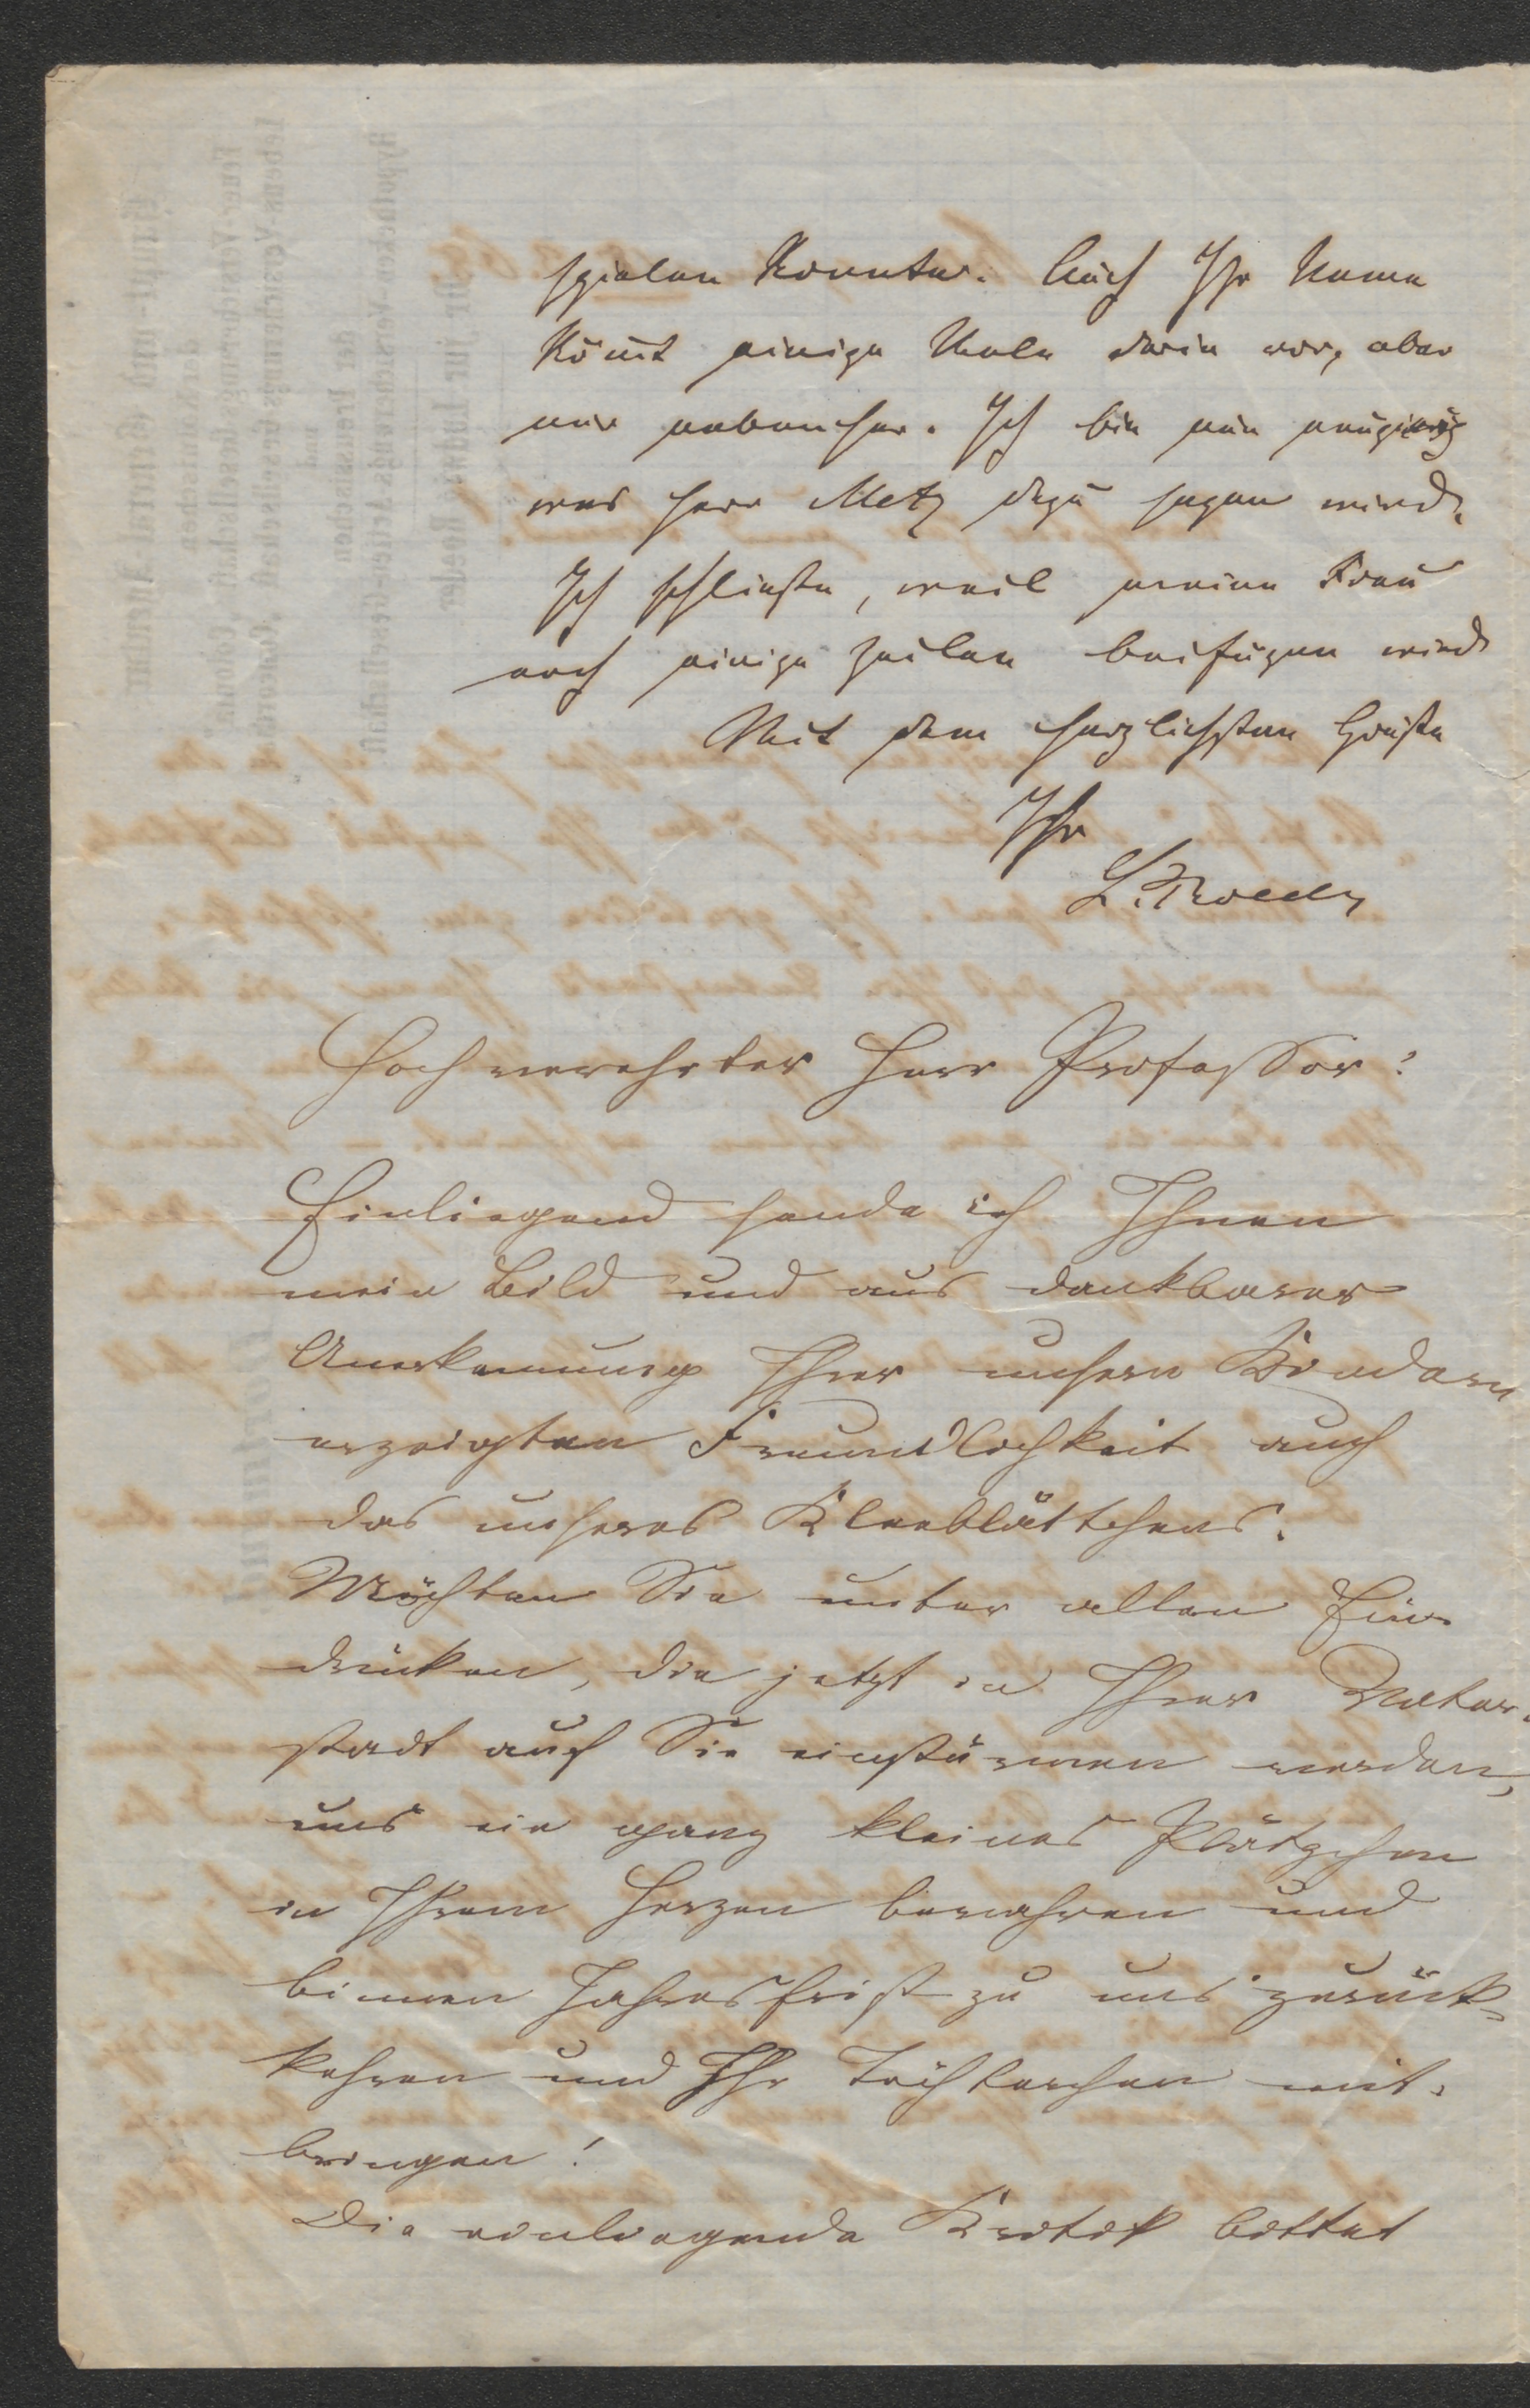 spielen konnten. Auch Ihr Name
kömt einige Male darin vor, aber
nur nebenher. Ich bin nun neugierig
was Herr Metz dazu sagen wird.
Ich schließe, weil meine Frau
noch einige Zeilen beifügen wird
Mit dem herzlichsten Gruße
Ihr
L. Roedy
Hochverehrter Herr Professor!
Einliegend sende ich Ihnen
mein Bild und aus dankbarer
Anerkennung Ihrer unsern Kindern
erzeigten Freundlichkeit auch
das unseres Kleeblättchens.
Möchten Sie unter allen Ein-
drücken, die jetzt in Ihrer Vater-
stadt auf Sie einstürmen werden,
uns ein ganz kleines Plätzchen
in Ihrem Herzen bewahren und
binnen Jahresfrist zu uns zurück-
kehren und Ihr Töchterchen mit-
bringen!
Die einliegende Kritik bittet